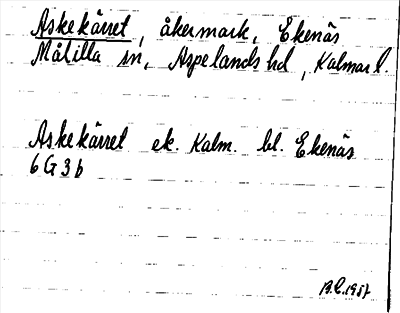 Askekärret, åkermark, Ekenäs
Målilla sn, Aspelands hd, Kalmar l.
Askekärret ek. Kalm. bl. Ekenäs
6 G 3 b